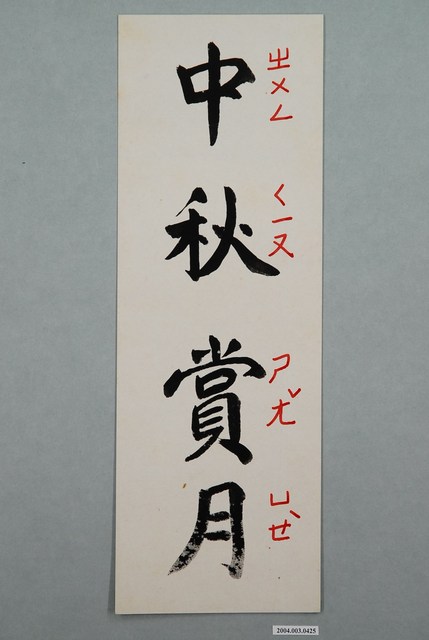 中秋賞月
ㄓㄨㄥ ㄑㄧㄡ ㄕㄤˇ ㄩㄝˋ
2004.003.0425